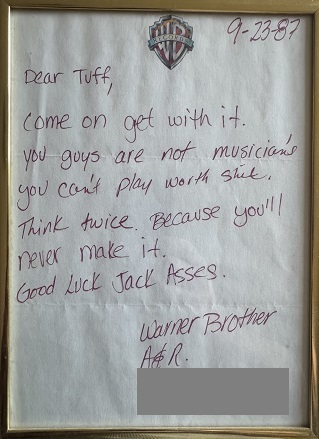 WB
RECORDS
9-23-87
Dear Tuff,
Come on get with it.
you guys are not musician's
you can't play worth shit.
Think twice. Because you'll
never make it.
Good Luck Jack Asses.
Warner Brother
A&R.